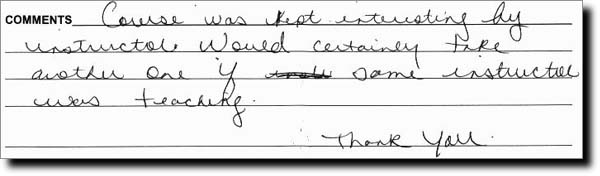 COMMENTS Course was kept interesting by
instructor. Would certainly take
another one if same instructor
was teaching.
Thank You.